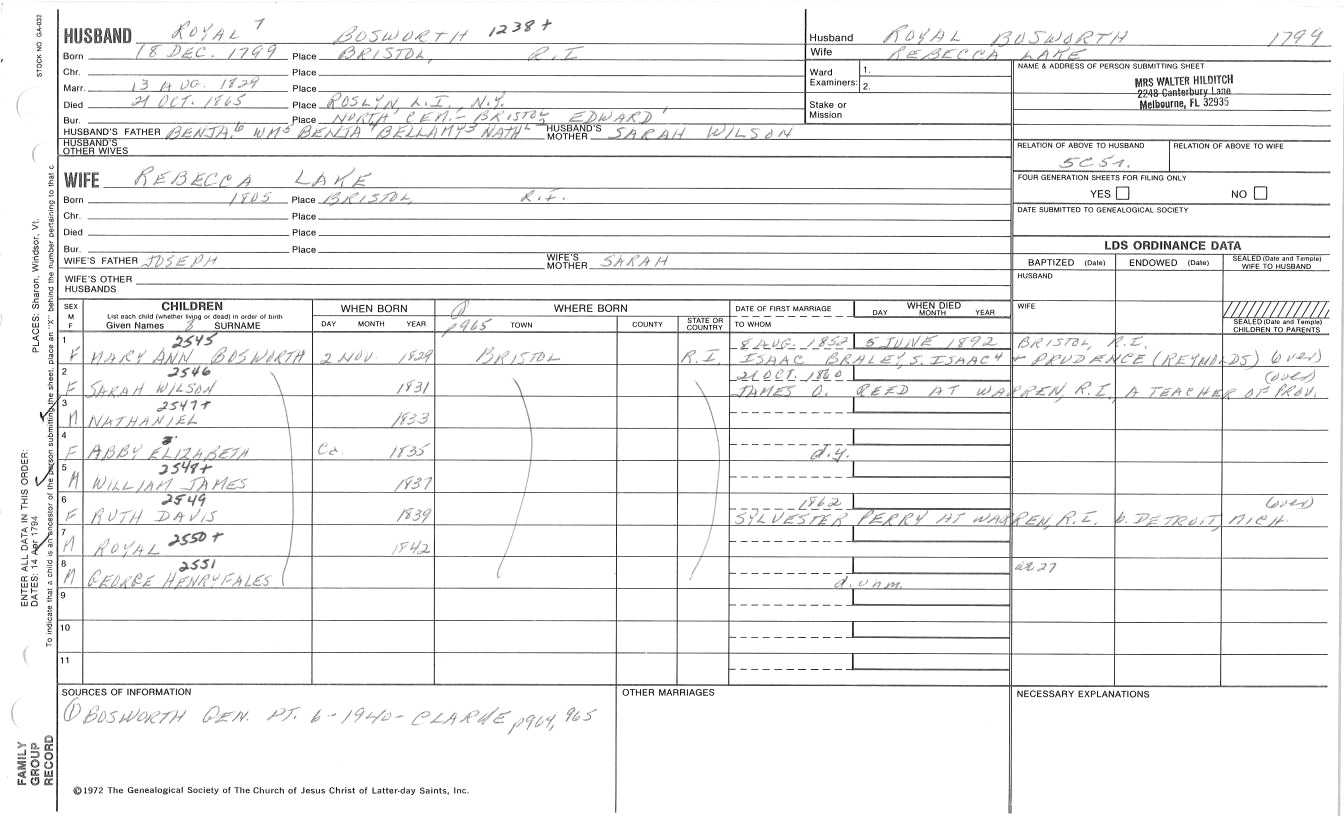 STOCK NO. GA-032
HUSBAND ROYAL 7 BOSWORTH 1238+
Born 18 DEC. 1799 Place BRISTOL, R.I
Chr. Place
Marr. 13 AUG. 1829 Place
Died 21 OCT. 1865 Place ROSLYN, L.I., N.Y.
Bur. Place NORTH CEM. - BRISTOL EDWARD 1
HUSBAND'S FATHER BENJA. 6 WM 5 BENJA 4 BELLAMY 3 NATH L 2 HUSBAND'S MOTHER SARAH WILSON
HUSBAND'S OTHER WIVES
Husband ROYAL BOSWORTH 1799
Wife REBECCA LAKE
Ward Examiners: 1.
2.
Stake or Mission
NAME & ADDRESS OF PERSON SUBMITTING SHEET
MRS WALTER HILDITCH
2248 Canterbury Lane
Melbourne, FL 32935
RELATION OF ABOVE TO HUSBAND RELATION OF ABOVE TO WIFE
5C5r.
FOUR GENERATION SHEETS FOR FILING ONLY
YES NO
DATE SUBMITTED TO GENEALOGICAL SOCIETY
WIFE REBECCA LAKE
Born 1805 Place BRISTOL, R.I.
Chr. Place
Died Place
Bur. Place
WIFE'S FATHER JOSEPH WIFE'S MOTHER SARAH
WIFE'S OTHER HUSBANDS
LDS ORDINANCE DATA
BAPTIZED (Date) ENDOWED (Date) SEALED (Date and Temple) WIFE TO HUSBAND
HUSBAND
WIFE
SEALED (Date and Temple) CHILDREN TO PARENTS
SEX M F CHILDREN WHEN BORN WHERE BORN DATE OF FIRST MARRIAGE WHEN DIED
List each child (whether living or dead) in order of birth
Given Names SURNAME DAY MONTH YEAR p965 TOWN COUNTY STATE OR COUNTRY TO WHOM DAY MONTH YEAR
1 2545 8 AUG. 1852 5 JUNE 1892 BRISTOL, R.I.
F MARY ANN BOSWORTH 2 NOV 1829 BRISTOL R.I. ISAAC BRALEY, S. ISAAC 4 + PRUDENCE (REYNOLDS) (over)
2 2546 21 OCT. 1860 (over)
F SARAH WILSON 1831 JAMES O. REED AT WARREN, R.I., A TEACHER OF PROV.
3 2547+
M NATHANIEL 1833
4
F ABBY ELIZABETH Ca 1835 d.y.
5 2548+
M WILLIAM JAMES 1837
6 2549 1862 (over)
F RUTH DAVIS 1839 SYLVESTER PERRY AT WARREN, R.I. b. DETROIT, MICH
7 2550+
M ROYAL 1842
8 2551 ae 27
M GEORGE HENRY FALES d. unm.
9
10
11
SOURCES OF INFORMATION OTHER MARRIAGES NECESSARY EXPLANATIONS
① BOSWORTH GEN. PT. 6 - 1940 - CLARKE p964, 965
©1972 The Genealogical Society of The Church of Jesus Christ of Latter-day Saints, Inc.
FAMILY GROUP RECORD
ENTER ALL DATA IN THIS ORDER:
DATES: 14 Apr 1794
PLACES: Sharon, Windsor, Vt.
To indicate that a child is an ancestor of the person submitting the sheet, place an "X" behind the number pertaining to that c